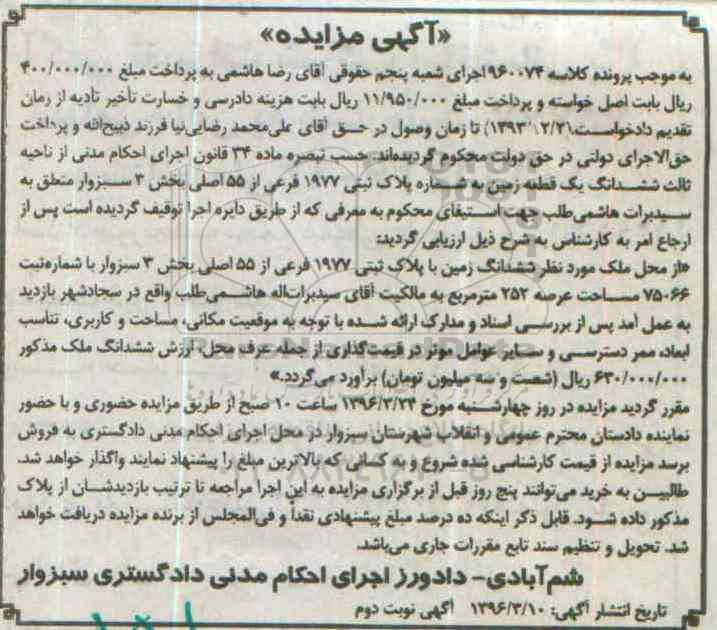 «آگهی مزایده»
به موجب پرونده کلاسه ۹۶۰۰۷۴ اجرای شعبه پنجم حقوقی آقای رضا هاشمی به پرداخت مبلغ ۴۰۰/۰۰۰/۰۰۰
ریال بابت اصل خواسته و پرداخت مبلغ ۱۱/۹۵۰/۰۰۰ ریال بابت هزینه دادرسی و خسارت تأخیر تأدیه از زمان
تقدیم دادخواست (۱۳۹۳/۱۲/۲) تا زمان وصول در حق آقای علی‌محمد رضایی‌نیا فرزند ذبیح‌الله و پرداخت
حق‌الاجرای دولتی در حق دولت محکوم گردیده‌اند. حسب تبصره ماده ۳۴ قانون اجرای احکام مدنی از ناحیه
ثالث ششدانگ یک قطعه زمین به شماره پلاک ثبتی ۱۹۷۷ فرعی از ۵۵ اصلی بخش ۳ سبزوار متعلق به
سیدبرات هاشمی‌طلب جهت استیفای محکوم به معرفی که از طریق دایره اجرا توقیف گردیده است پس از
ارجاع امر به کارشناس به شرح ذیل ارزیابی گردید:
«از محل ملک مورد نظر ششدانگ زمین با پلاک ثبتی ۱۹۷۷ فرعی از ۵۵ اصلی بخش ۳ سبزوار با شماره‌ثبت
۷۵۰۶۶ مساحت عرصه ۲۵۲ مترمربع به مالکیت آقای سیدبرات‌اله هاشمی‌طلب واقع در سجادشهر بازدید
به عمل آمد پس از بررسی اسناد و مدارک ارائه شده با توجه به موقعیت مکانی، مساحت و کاربری، تناسب
ابعاد، ممر دسترسی و سایر عوامل موثر در قیمت‌گذاری از جمله عرف محل، ارزش ششدانگ ملک مذکور
۶۳۰/۰۰۰/۰۰۰ ریال (شصت و سه میلیون تومان) برآورد می‌گردد.»
مقرر گردید مزایده در روز چهارشنبه مورخ ۱۳۹۶/۳/۲۴ ساعت ۱۰ صبح از طریق مزایده حضوری و با حضور
نماینده دادستان محترم عمومی و انقلاب شهرستان سبزوار در محل اجرای احکام مدنی دادگستری به فروش
برسد مزایده از قیمت کارشناسی شده شروع و به کسانی که بالاترین مبلغ را پیشنهاد نمایند واگذار خواهد شد.
طالبین به خرید می‌توانند پنج روز قبل از برگزاری مزایده به این اجرا مراجعه تا ترتیب بازدیدشان از پلاک
مذکور داده شود. قابل ذکر اینکه ده درصد مبلغ پیشنهادی نقداً و فی‌المجلس از برنده مزایده دریافت خواهد
شد. تحویل و تنظیم سند تابع مقررات جاری می‌باشد.
شم‌آبادی- دادورز اجرای احکام مدنی دادگستری سبزوار
تاریخ انتشار آگهی: ۱۳۹۶/۳/۱۰ آگهی نوبت دوم